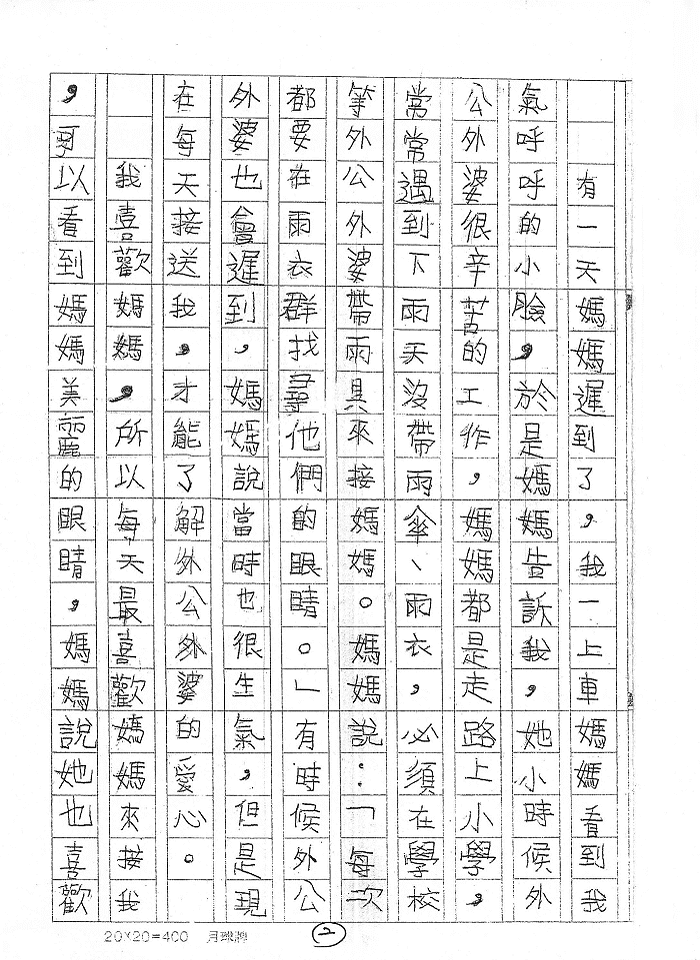 有一天媽媽遲到了，我一上車媽媽看到我
氣呼呼的小臉，於是媽媽告訴我，她小時候外
公外婆很辛苦的工作，媽媽都是走路上小學，
常常遇到下雨天沒帶雨傘、雨衣，必須在學校
等外公外婆帶雨具來接媽媽。媽媽說：「每次
都要在雨衣群找尋他們的眼睛。」有時候外公
外婆也會遲到，媽媽說當時也很生氣，但是現
在每天接送我，才能了解外公外婆的愛心。
我喜歡媽媽，所以每天最喜歡媽媽來接我
，可以看到媽媽美麗的眼睛，媽媽說她也喜歡
20×20=400 月球牌
2